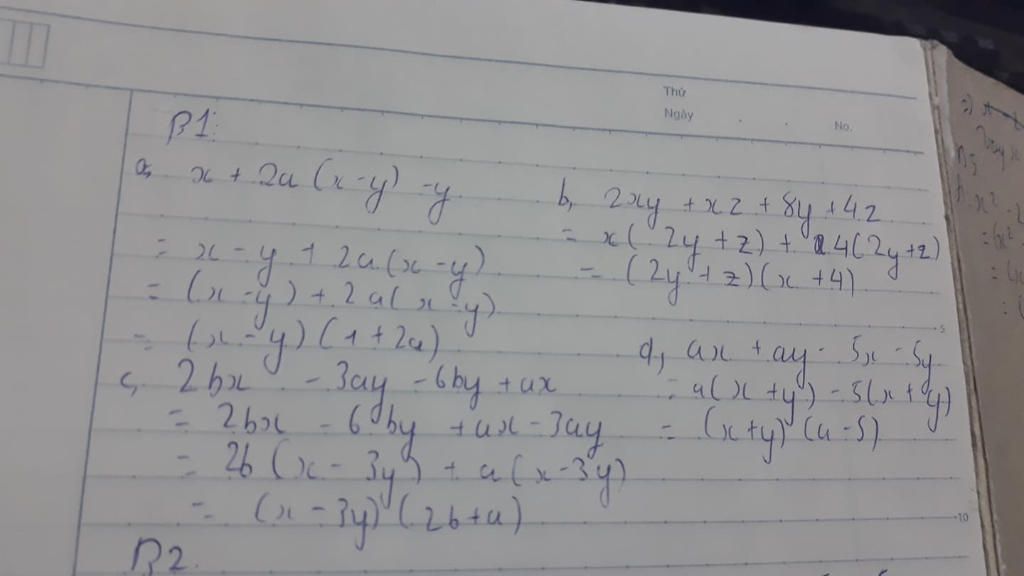 Thứ
Ngày
No.
B1:
a, x + 2a (x-y) - y
= x - y + 2a (x-y)
= (x-y) + 2a (x-y)
= (x-y) (1+2a)
b, 2xy + xz + 8y + 4z
= x( 2y+z) + 4(2y+z)
= (2y+z)(x+4)
c, 2bx - 3ay - 6by + ax
= 2bx - 6by + ax - 3ay
= 2b (x - 3y) + a (x-3y)
= (x - 3y) (2b+a)
d, ax + ay - 5x - 5y
= a(x+y) - 5(x+y)
= (x+y) (a-5)
5
10
B2.